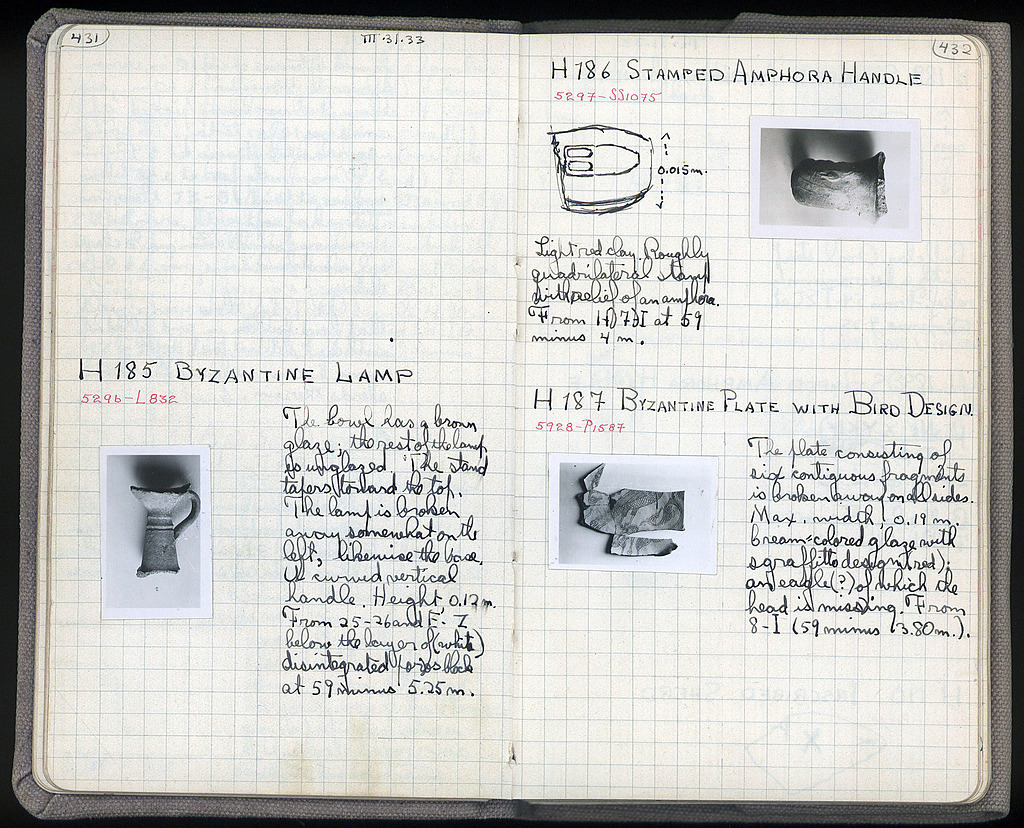 431
III·31·33
H 185 BYZANTINE LAMP
5296-L832
The bowl has a brown
glaze; the rest of the lamp
is unglazed. The stand
tapers toward the top.
The lamp is broken
away somewhat on the
left, likewise the base.
curved vertical
handle. Height, 0.12 m.
From 25-26 and E-Z
below the layer of (white)
disintegrated block
at 59 minus 5.25 m.
432
H 186 STAMPED AMPHORA HANDLE
5297-SS1075
0.015 m.
Light red clay. Roughly
quadrilateral stamp
with relief of an amphora.
From at 59
minus 4 m.
H 187 BYZANTINE PLATE WITH BIRD DESIGN.
5928-P1587
The plate consisting of
six contiguous fragments
is broken away on all sides.
Max. width, 0.19 m.
Cream-colored glaze with
sgraffitto design (red);
an eagle (?) of which the
head is missing. From
8-I (59 minus 3.80 m.).